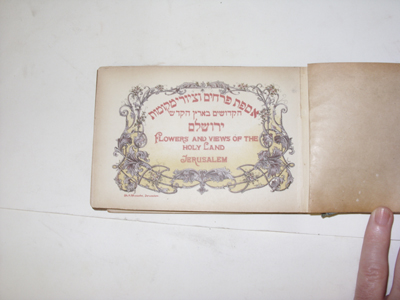 אספת פרחים וציורי מקומות
הקדושים בארץ הקדש
ירושלם
FLOWERS AND VIEWS OF THE
HOLY LAND
JERUSALEM